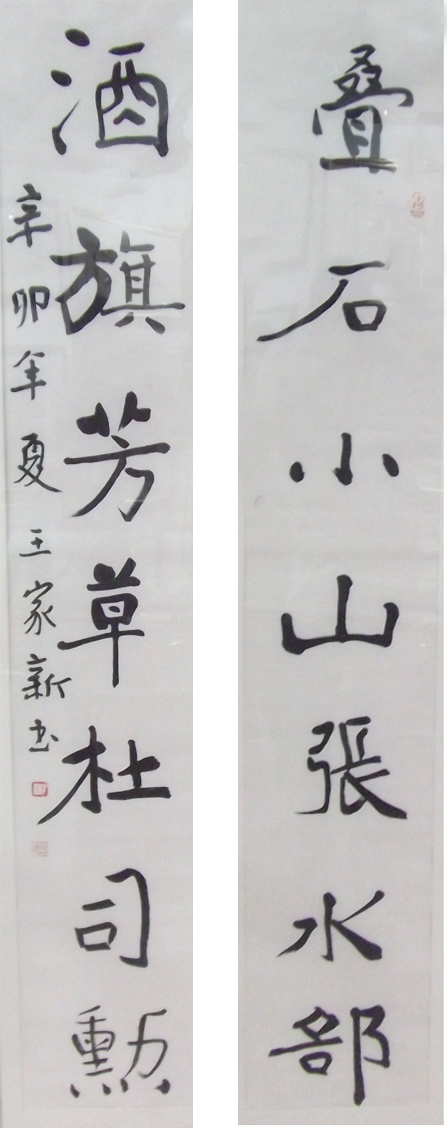 叠石小山張水部
酒旗芳草杜司勳
辛卯年夏王家新书